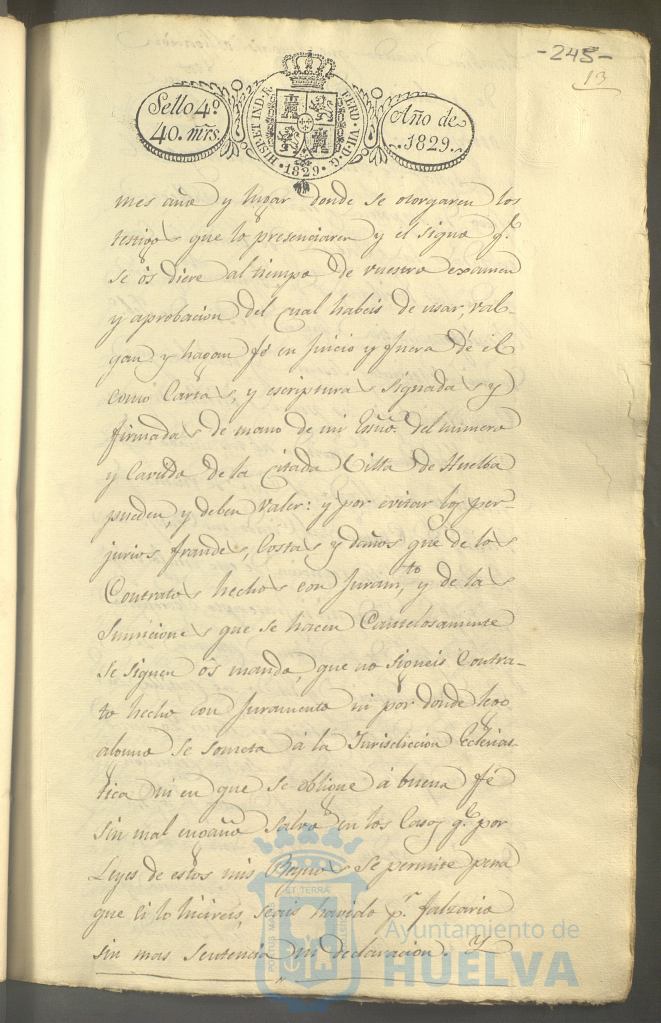 -245-
13
Sello 4º
40. mrs.
HISP. ET IND. R. FERD. VII. D. G.
1829
Año de
1829.
mes año y lugar donde se otorgaren los
testigos que lo presenciaren y el signo q.e
se ôs diere al tiempo de vuestro examen
y aprobacion del cual habeis de usar, val-
gan y hagan fé en juicio y fuera de él
como Cartas, y escripturas signadas y
firmadas de mano de mi Esño. del numero
y Cavildo de la Citada Villa de Huelba
pueden, y deben valer: y por evitar los per-
jurios, fraudes, Costas y daños que de los
Contratos hechos con juram.to, y de las
Sumiciones que se hacen Cautelosamente
se siguen ôs mando, que no signeis Contra-
to hecho con Juramento ni por donde lego
alguno se someta á la Jurisdiccion Eclesias-
tica ni en que se oblique á buena fé
sin mal engaño salvo en los Casos q.e por
Leyes de estos mis Reynos se permite pena
que si lo hiciereis, seais havido p.r falsario
sin mas sentencia ni declaracion. Y
PORTUS MARIS ET TERRÆ
Ayuntamiento de
HUELVA